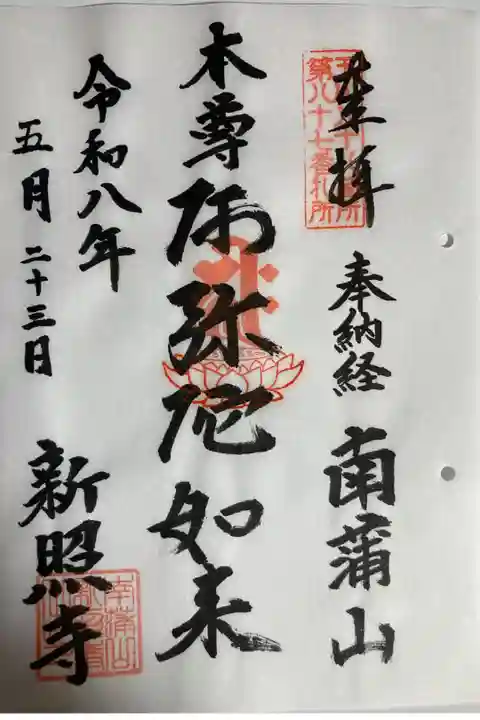 登拝
第八十七番札所
奉納経
南蒲山
本尊
阿弥陀如来
令和八年
五月二十三日
新照寺
南蒲山